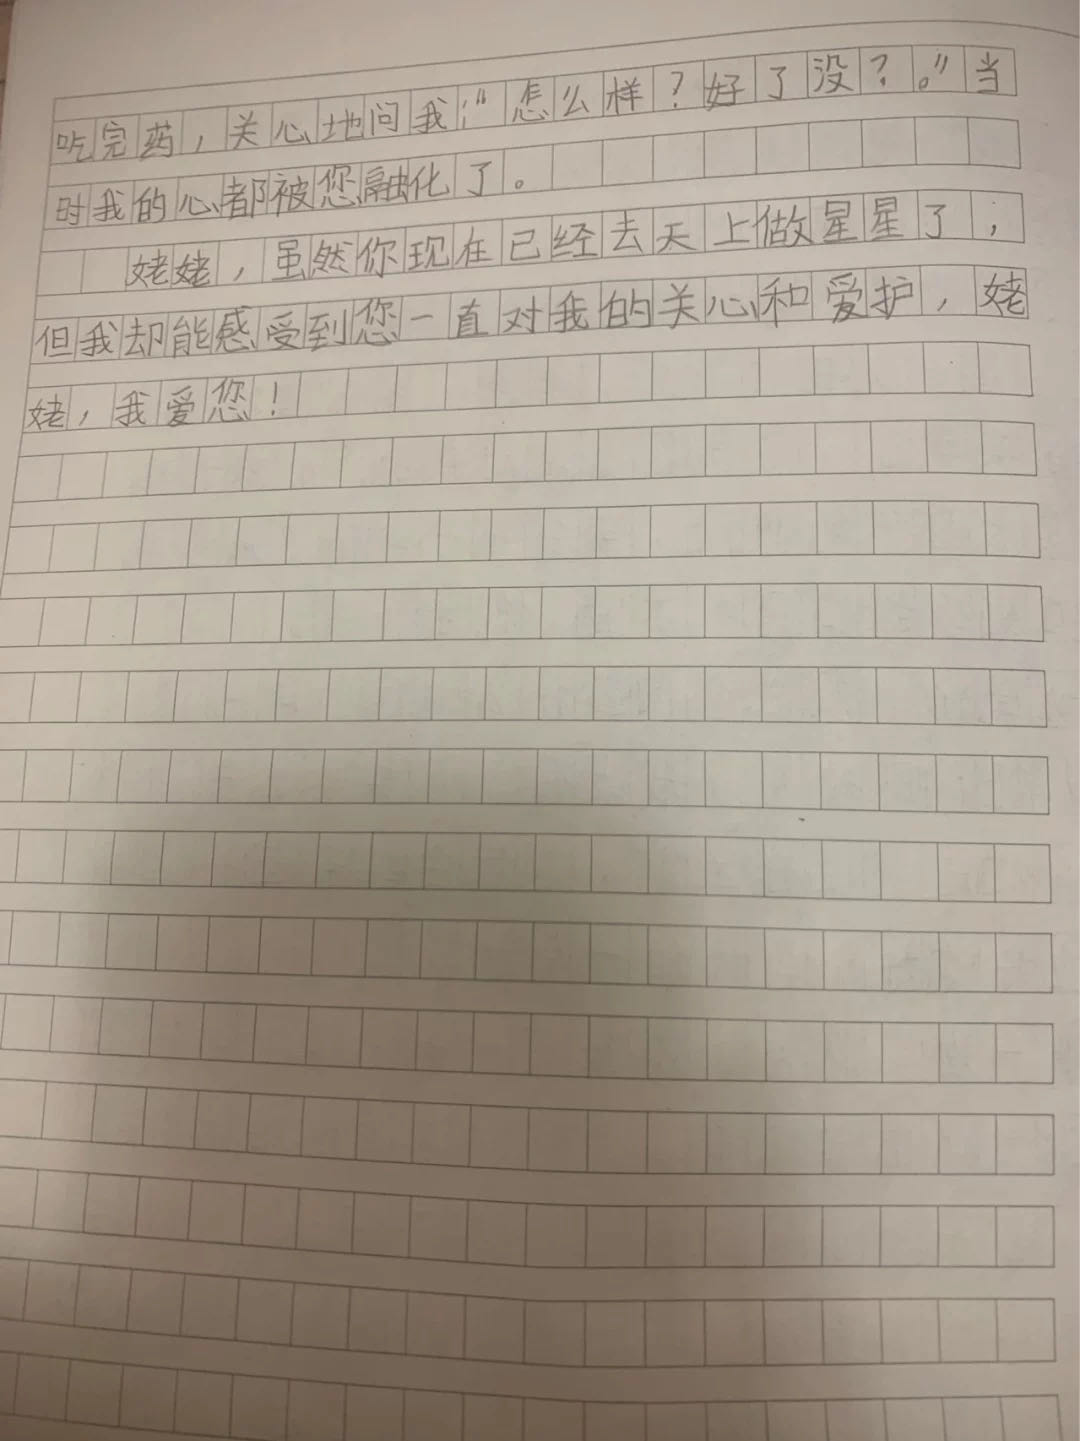 吃完药，关心地问我：“怎么样？好了没？。”当
时我的心都被您融化了。
姥姥，虽然你现在已经去天上做星星了，
但我却能感受到您一直对我的关心和爱护，姥
姥，我爱您！